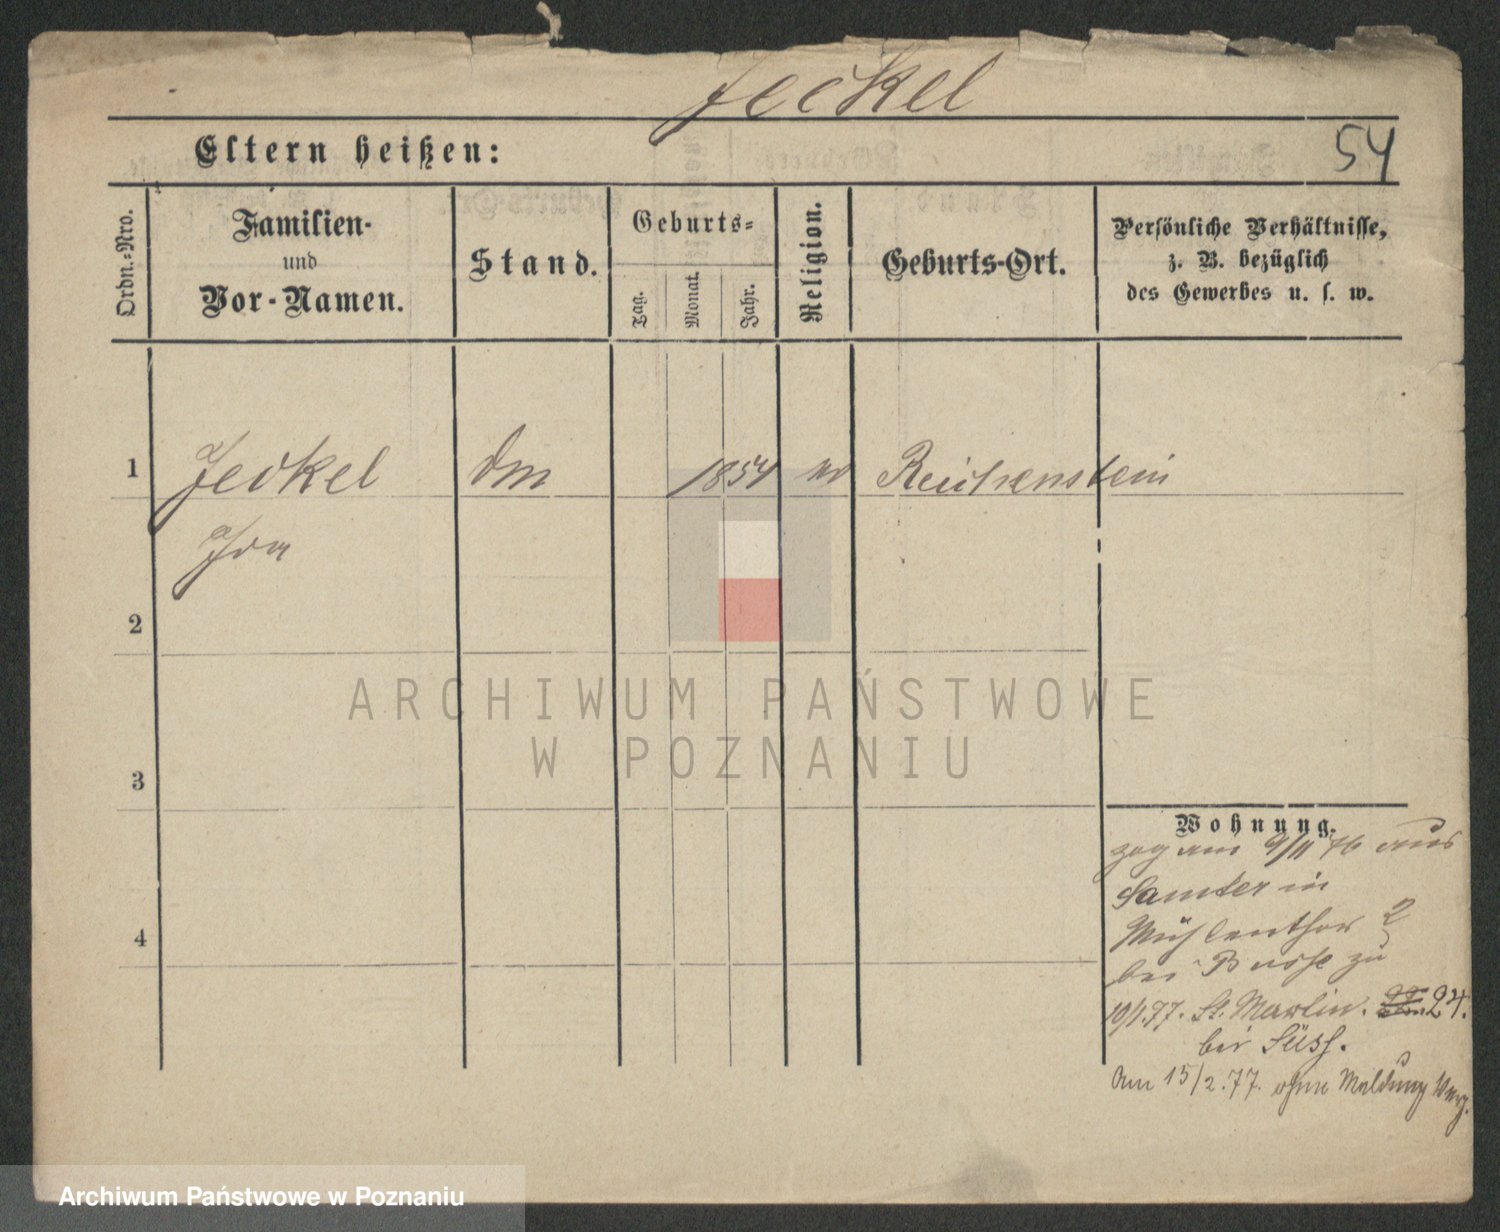 Jeckel
Eltern heißen:
54
Ordn.-Nro.
Familien-
und
Vor-Namen.
Stand.
Geburts-
Tag.
Monat.
Jahr.
Religion.
Geburts-Ort.
Persönliche Verhältnisse,
z. B. bezüglich
des Gewerbes u. s. w.
1 Jeckel 1854 Reichenstein
Ida
2
3
4
Wohnung.
zog am 9/11 76 aus
Samter in
Mühlenthor 2
bei Busse zu
10/1.77. St. Martin. 24.
bei Süss.
Am 15/2.77. ohne Meldung verz.
ARCHIWUM PAŃSTWOWE
W POZNANIU
Archiwum Państwowe w Poznaniu